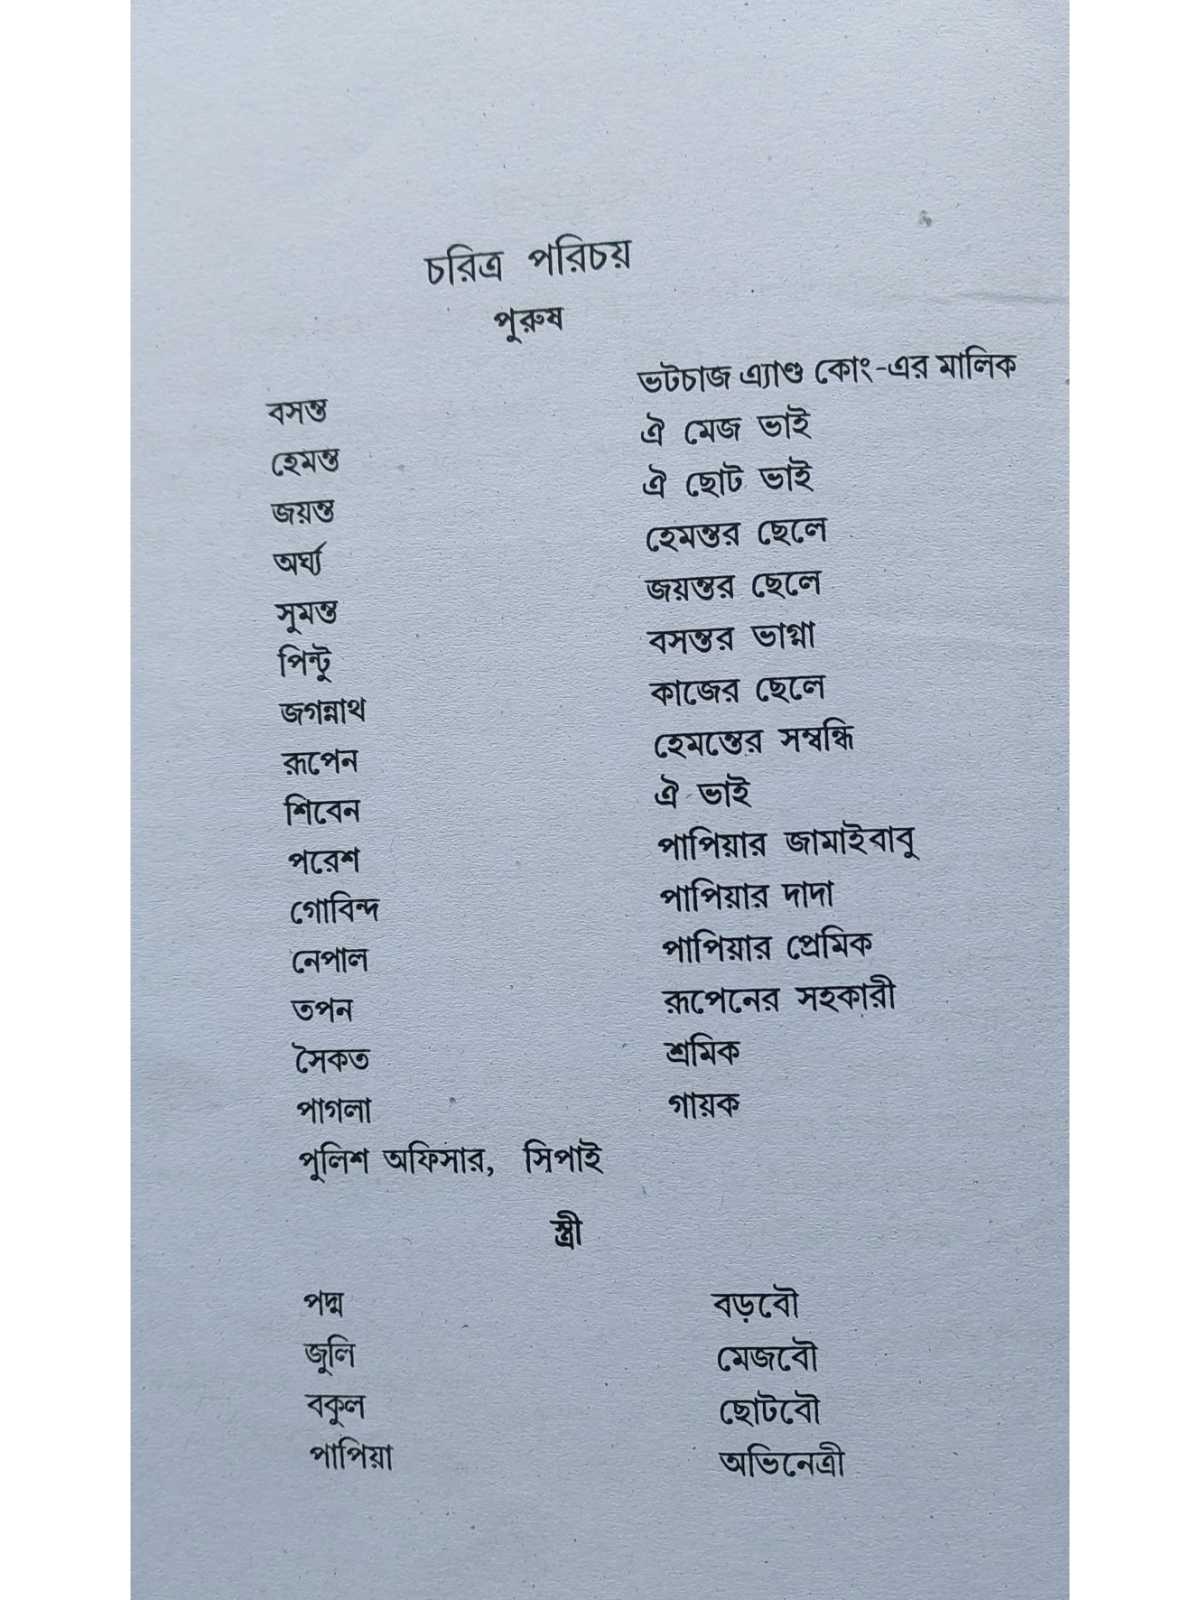 চরিত্র পরিচয়
পুরুষ
বসন্ত ভটচাজ এ্যাণ্ড কোং-এর মালিক
হেমন্ত ঐ মেজ ভাই
জয়ন্ত ঐ ছোট ভাই
অর্ঘ্য হেমন্তর ছেলে
সুমন্ত জয়ন্তর ছেলে
পিন্টু বসন্তর ভাগ্না
জগন্নাথ কাজের ছেলে
রূপেন হেমন্তের সম্বন্ধি
শিবেন ঐ ভাই
পরেশ পাপিয়ার জামাইবাবু
গোবিন্দ পাপিয়ার দাদা
নেপাল পাপিয়ার প্রেমিক
তপন রূপেনের সহকারী
সৈকত শ্রমিক
পাগলা গায়ক
পুলিশ অফিসার, সিপাই
স্ত্রী
পদ্ম বড়বৌ
জুলি মেজবৌ
বকুল ছোটবৌ
পাপিয়া অভিনেত্রী